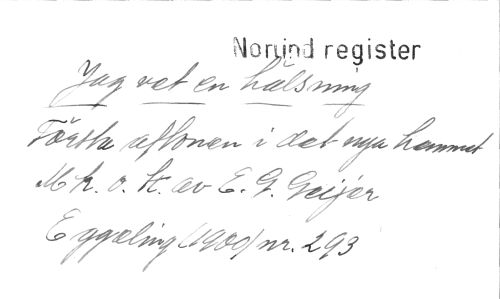 Norlind register
Jag vet en hälsning
Första aftonen i det nya hemmet
M k. o. t. av E. G. Geijer
Eggeling (1900) nr. 293